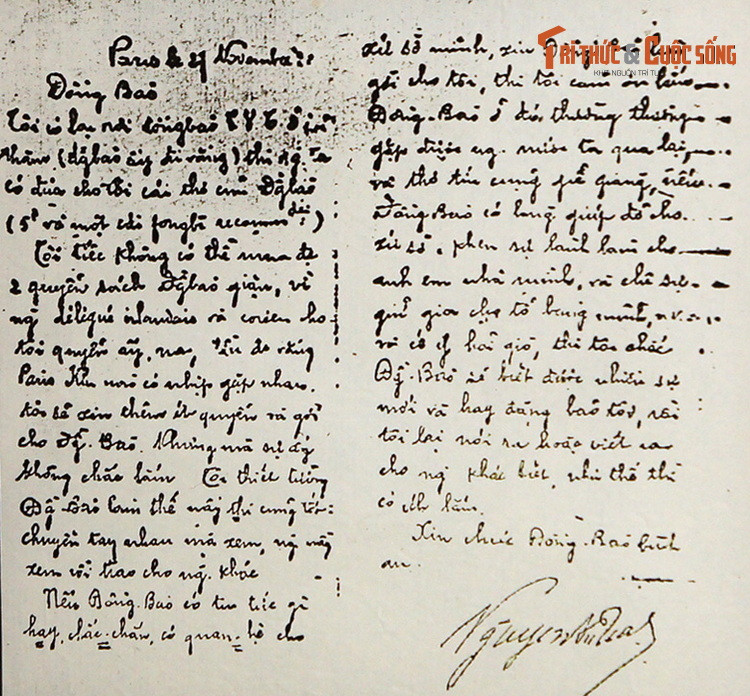 TRI THỨC & CUỘC SỐNG
Paris le 27 Novembre
Đồng Bào
Tôi có lại nơi đồng bào
(đgbào ấy đi vắng) thì ng. ta
có đưa cho tôi cái thơ của Đgbào
(5f và một cái fongbì recommandé)
Tôi tiếc không có thể mua đc
2 quyển sách Đgbào giận, vì
ng délégué irlandais và coréen cho
tôi quyển ấy, nó
Paris Khi nào có nhịp gặp nhau
tôi sẽ xin thêm ít quyển và gởi
cho Đg. Bào. Nhưng mà sự ấy
không chắc lắm Tôi thiết tưởng
Đg. Bào làm thế này thì cũng tốt:
chuyền tay nhau mà xem, ng này
xem rồi trao cho ng. khác
Nếu Đồng. Bào có tin tức gì
hay, chắc-chắn, có quan-hệ cho
xứ sở mình, xin Đồng Bào
gởi cho tôi, thì tôi cám ơn lắm
Đồng-Bào ở đó thường thường
gặp được ng. mình ta qua lại,
và thơ tín cũng giễ giàng, nếu
Đồng-Bào có lòng giúp đỡ cho
xứ sở, khen sự lành làm cho
anh em nhà mình, và chê sự
giữ
và có ý hỏi gió, thì tôi chắc
Đg. Bào sẽ biết được nhiều sự
mới và hay đặng bảo tôi, rồi
tôi lại nói ra hoặc viết ra
cho ng khác biết, như thế thì
có ích lắm.
Xin chúc Đồng-Bào bình
an.
Nguyen